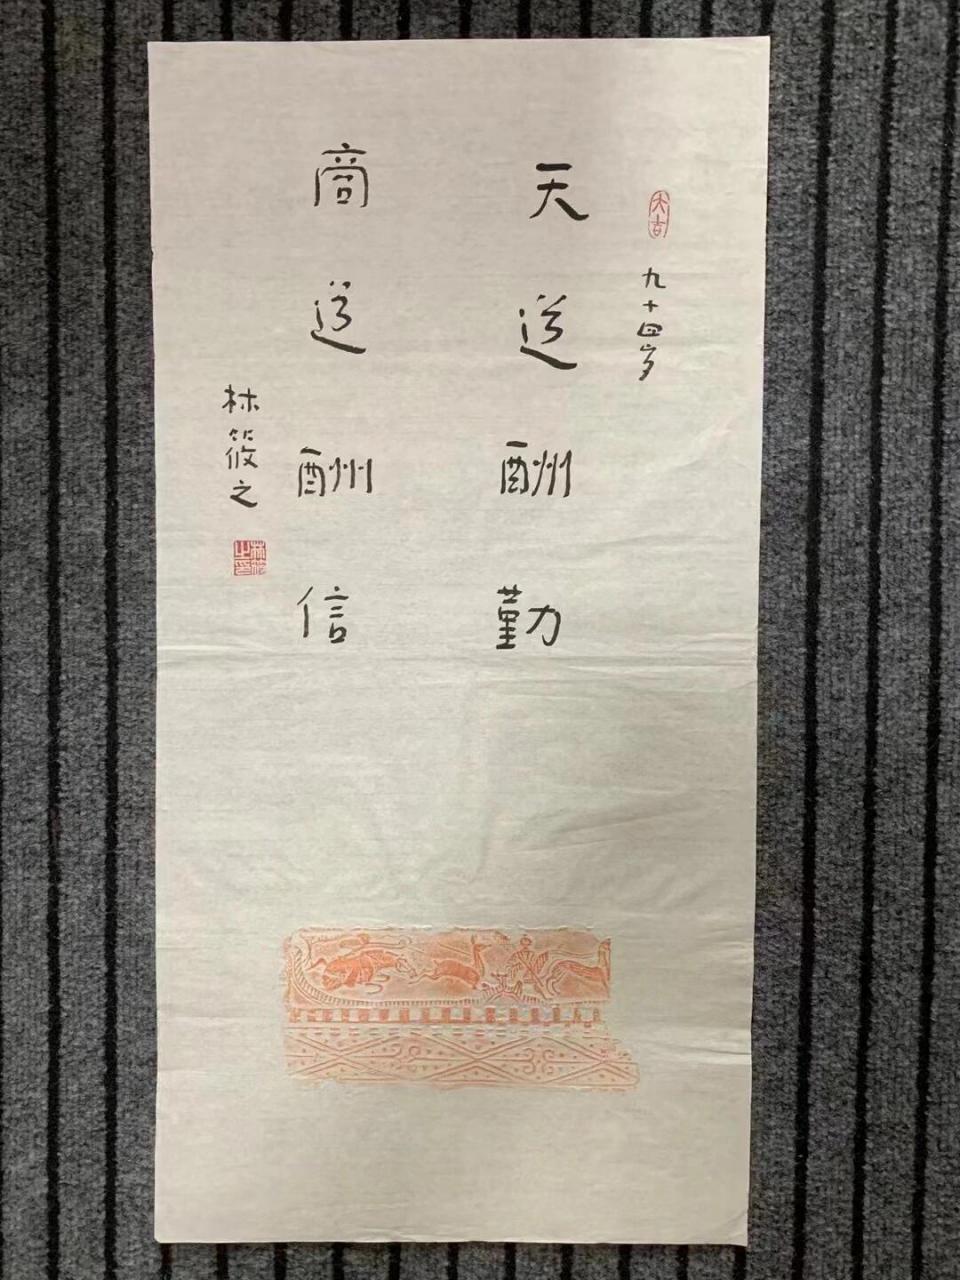 大吉
九十四岁
天道酬勤
商道酬信
林筱之
林筱之印